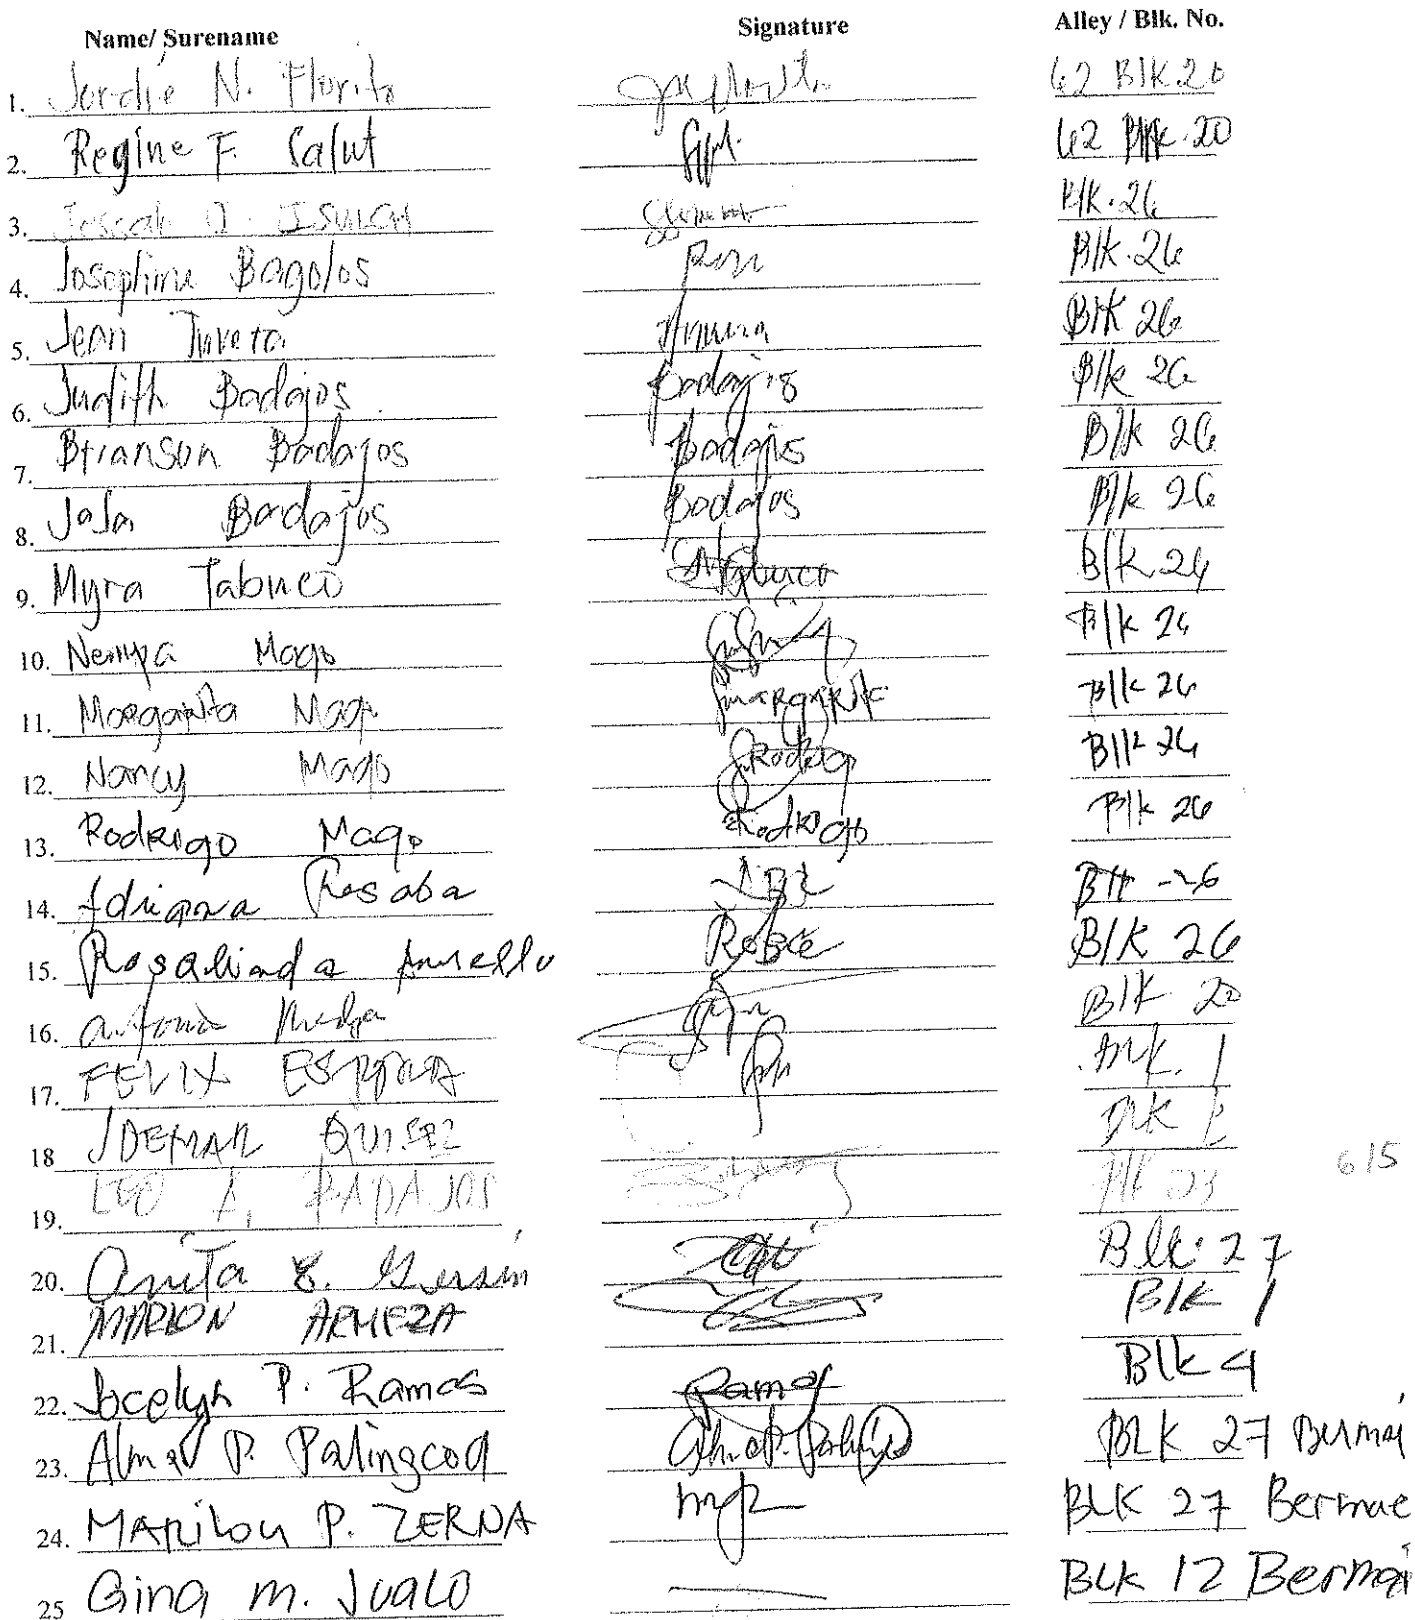 Name/ Surename Signature Alley / Blk. No.
1. Jordie N. Florito 62 Blk 20
2. Regine F. Salut 62 Blk 20
3. Jessah Blk. 26
4. Josephine Bagolos Blk. 26
5. Jean Blk 26
6. Judith Badajos Badajos Blk 26
7. Branson Badajos Badajos Blk 26
8. Badajos Badajos Blk 26
9. Myra Tabuco Tabuco Blk 26
10. Mago Blk 26
11. Margarita Mago margarita Blk 26
12. Nancy Mago Blk 26
13. Rodrigo Mago Rodrigo Blk 26
14. Adriana Rosaba Blk 26
15. Rosalinda Blk 26
16. Blk 20
17. FELIX ESPAÑA Blk. 1
18 JDEMAR Blk
19. LEO A. BADAJOS Blk 23
6/5
20. Anita Blk. 27
21. MARLON ARMEZA Blk 1
22. Jocelyn P. Ramos Ramos Blk 4
23. Alma P. Palingcod BLK 27 Bermai
24. MARiLou P. ZERNA BLK 27 Bermae
25 Gina M. Jualo BLK 12 Bermai